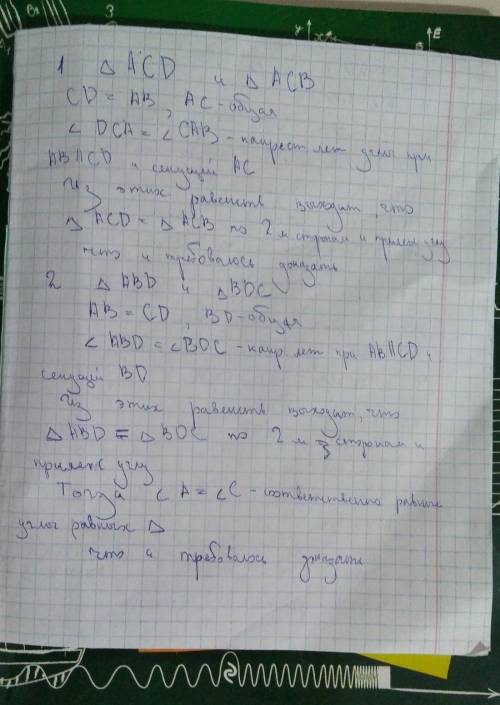 1 △ ACD и △ ACB
CD = AB, AC - общая
∠ DCA = ∠ CAB - накрест леж углы при
AB || CD и секущей AC
Из этих равенств выходит, что
△ ACD = △ ACB по 2 м сторонам и прилеж углу
что и требовалось доказать
2 △ ABD и △ BDC
AB = CD, BD - общая
∠ ABD = ∠ BDC - накр леж при AB || CD и
секущей BD
Из этих равенств выходит, что
△ ABD = △ BDC по 2 м сторонам и
прилеж углу
Тогда ∠ A = ∠ C - соответственно равные
углы равных △
что и требовалось доказать
3
E